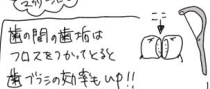 歯の間の歯垢は
フロスをつかってとると
歯ブラシの効率もup!!